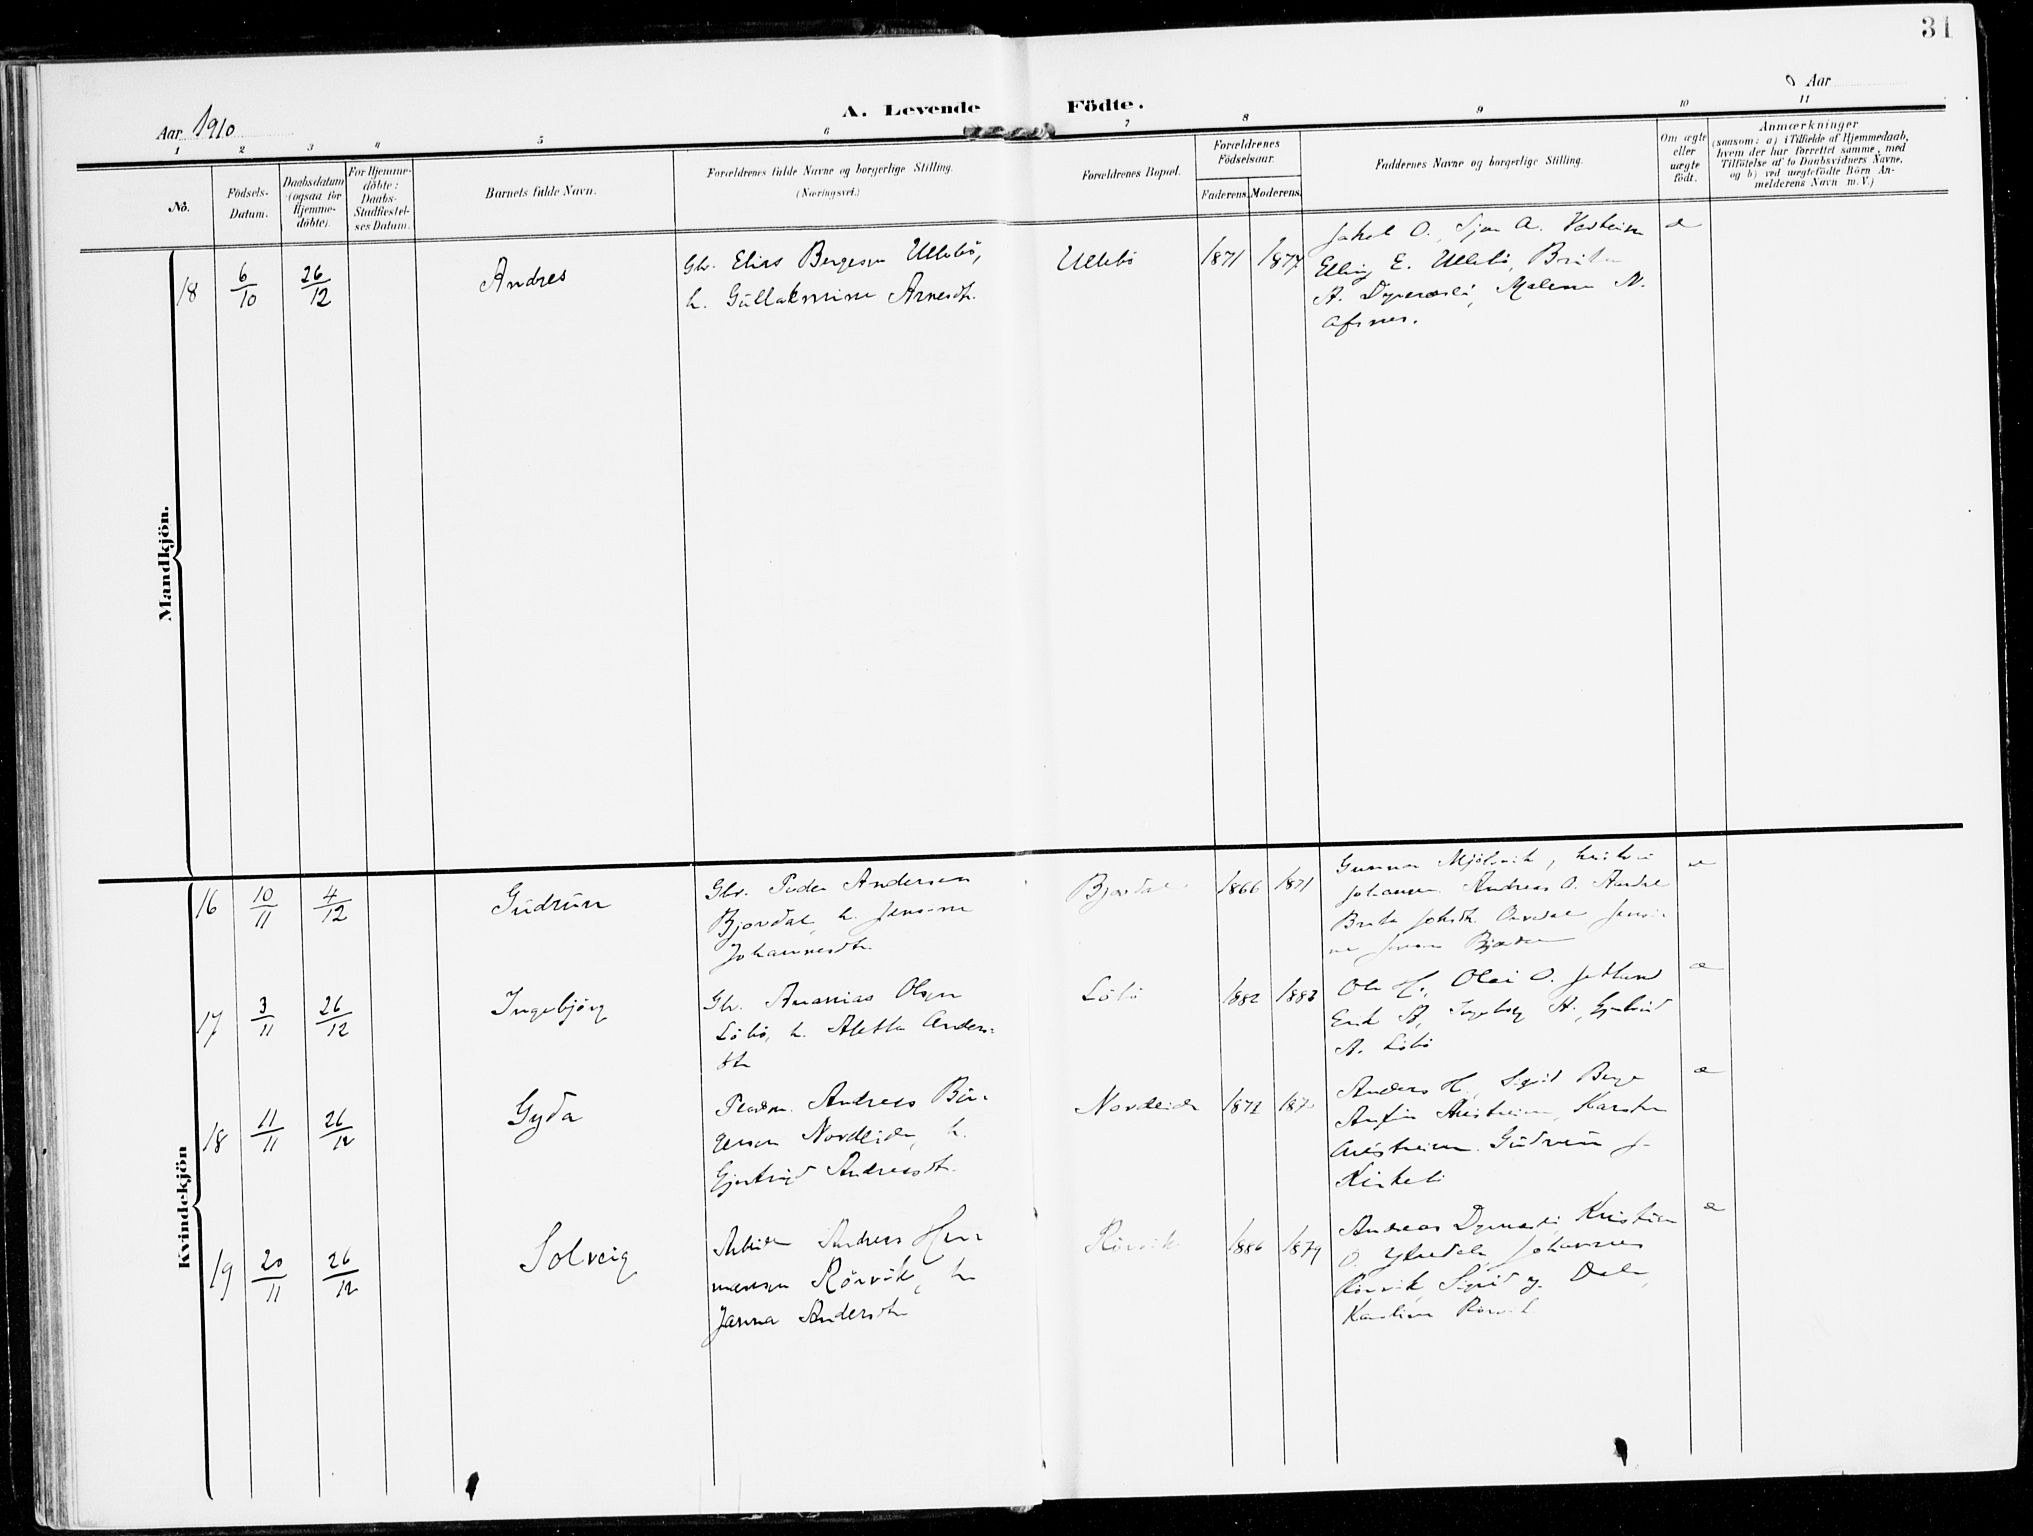 31
Aar 1910
A. Levende Födte.
Aar
1 2 3 4 5 6 7 8 9 10 11
No.
Födsels-Datum.
Daabsdatum (ogsaa for Hjemmedöbte).
For Hjemmedöbte: Daabs-Stadfæstelses Datum.
Barnets fulde Navn.
Forældrenes fulde Navne og borgerlige Stilling.
(Næringsvei.)
Forældrenes Bopæl.
Forældrenes Födselsaar.
Faderens. Moderens.
Faddernes Navne og borgerlige Stilling.
Om ægte eller uægte födt.
Anmærkninger
(saasom: a) i Tilfælde af Hjemmedaab,
hvem der har forrettet samme, med
Tilföielse af to Daabsvidners Navne,
og b) ved uægtefödte Börn An-
melderens Navn m. V.)
Mandkjön.
18 6/10 26/12 Andres
Gbr. Elias Bergesen Ullebö,
h. Gullaksmine Arnesdtr.
Ullebö 1871 1874
Jakob O.,
Elling E. Ullebö, Brita
A. Malene N.
æ
Kvindekjön
16 10/11 4/12 Gudrun
Gbr. Peder Andersen
Bjordal, h. Jensine
Johannesdtr.
Bjordal 1866 1871
Gunnar
Johansen. Andreas O.
Brita
æ
17 3/11 26/12 Ingebjörg
Gbr. Ananias Olsen
Löbö, h. Aletta Anders-
dtr
Löbö 1882 1883
Ole H., Olai O.
Erik A, Ingeborg A.,
A. Löbö
æ
18 11/11 26/12 Gyda
Andreas Bör-
gesen Nordeide, h.
Gjertrud Andreasdtr.
Nordeide 1872
Anders H, Sigrid Berge
Karsten
Gudrun J.
æ
19 20/11 26/12 Solveig
Arbeider Andreas Her-
mansen Rörvik, h.
Janna Andersdtr
Rörvik 1886 1879
Andreas Kristian
O. Johannes
Rörvik, Sigrid
Rörvik
æ